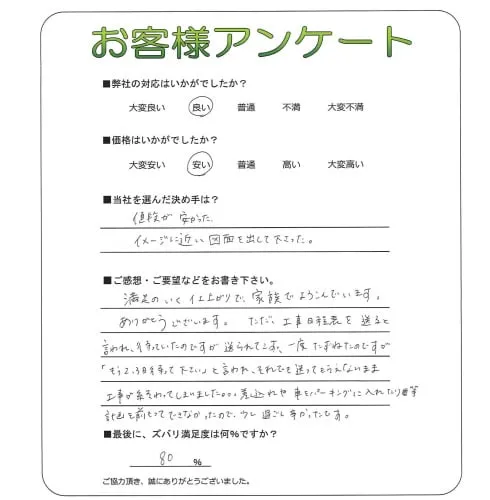 お客様アンケート
■弊社の対応はいかがでしたか？
大変良い 良い 普通 不満 大変不満
■価格はいかがでしたか？
大変安い 安い 普通 高い 大変高い
■当社を選んだ決め手は？
値段が安かった
イメージに近い図面を出して下さった。
■ご感想・ご要望などをお書き下さい。
満足のいく仕上がりで、家族でよろこんでいます。
ありがとうございます。ただ、工事日程表を送ると
言われ、待っていたのですが送られてこず、一度たずねたのですが
「もう2、3日待って下さい」と言われ、それでも送ってもらえないまま
工事が終わってしまいました。。。差込れや車をパーキングに入れたり等
計画を前もってできなかったので、少し過ごし辛かったです。
■最後に、ズバリ満足度は何%ですか？
80 %
ご協力頂き、誠にありがとうございました。